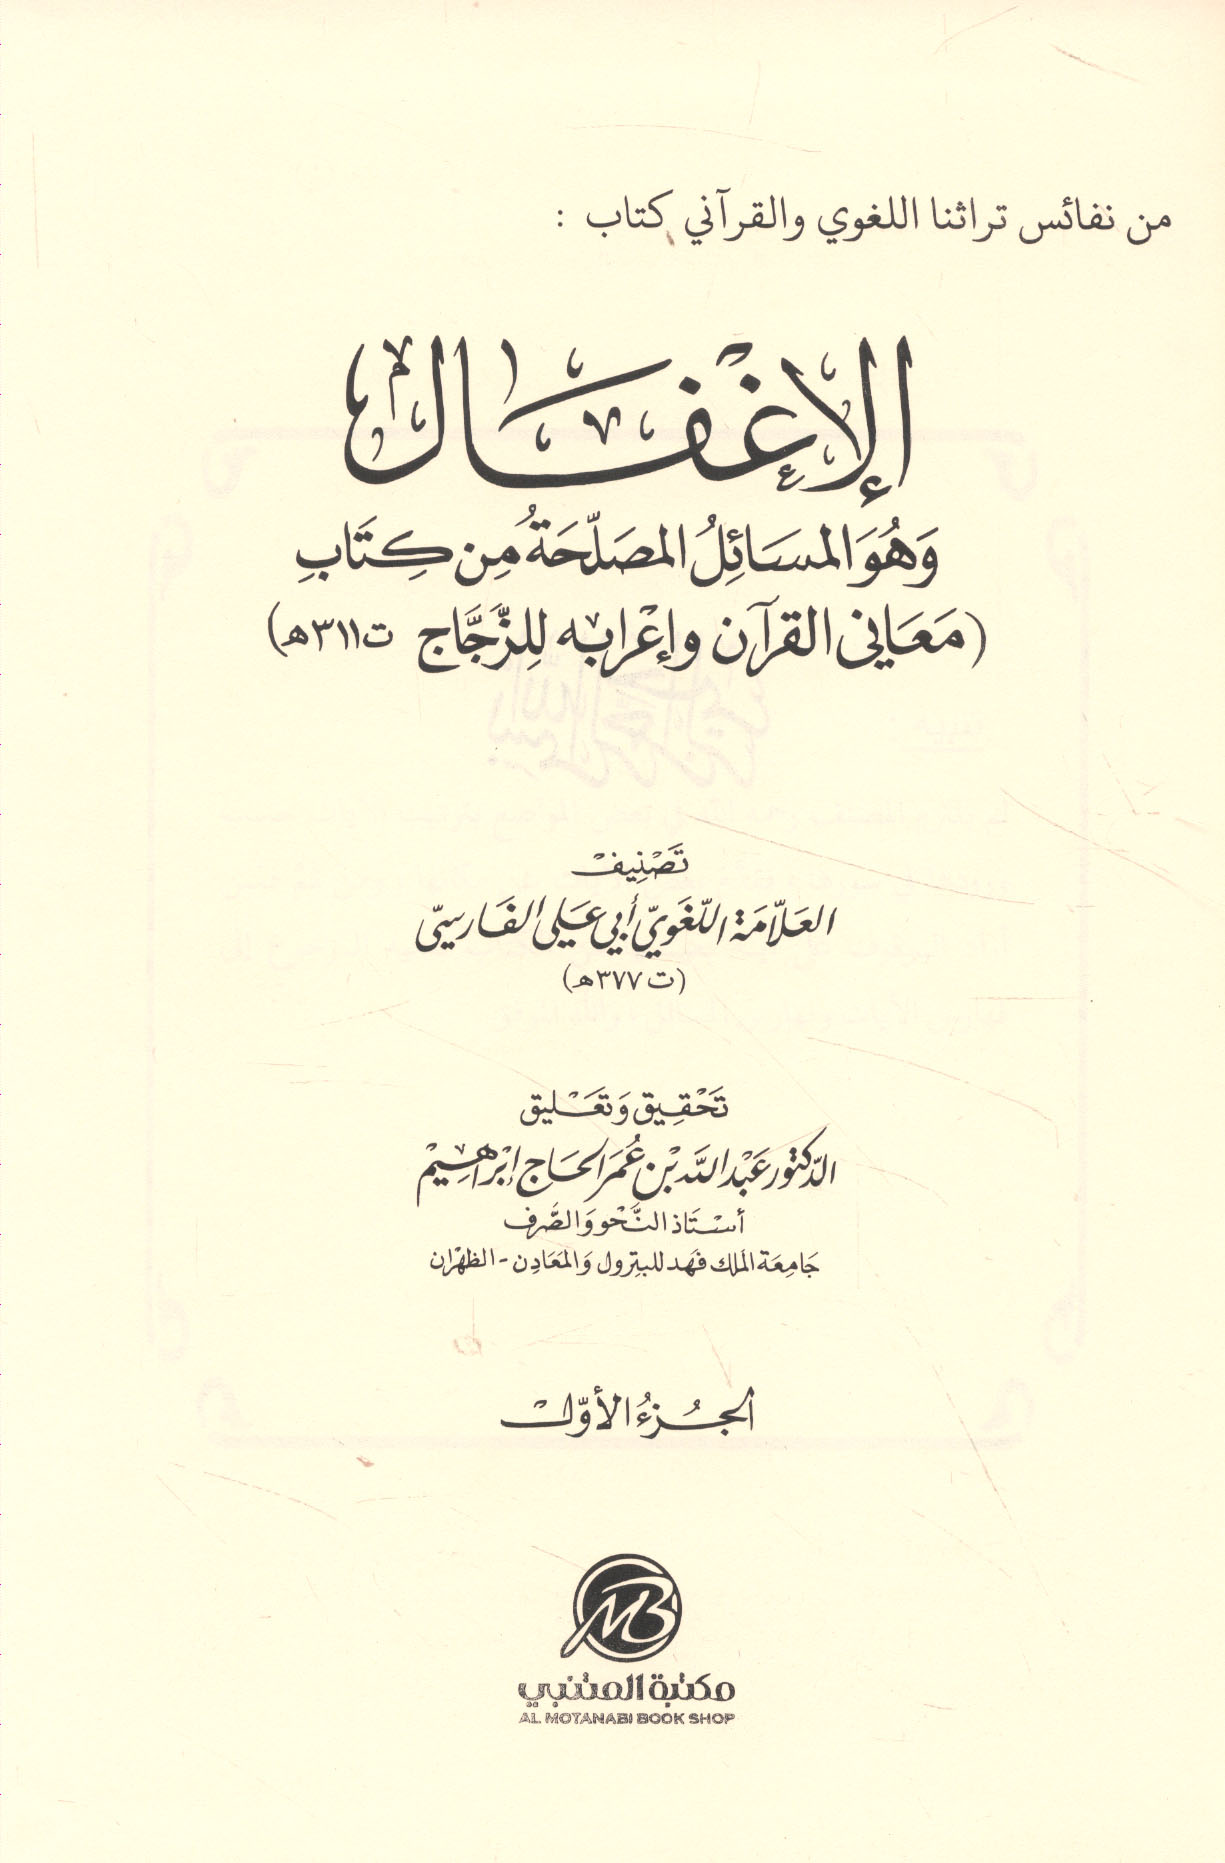 من نفائس تراثنا اللغوي والقرآني كتاب :
الإغْفَال
وَهُوَ المسَائِلُ المصَلّحَةُ مِن كِتَابِ
(مَعَاني القرآن وإعْرابه لِلزَّجَّاج ت٣١١هـ)
تَصْنِيفْ
العَلّامَة اللّغَويّ أبي عَلي الفَارسيّ
(ت ٣٧٧هـ)
تَحْقِيق وَتعَـْليق
الدّكتور عَبْد اللَّه بْن عُمَر الحَاج إبْراهِيمْ
أسْتَاذ النَّحْو وَالصَّرف
جَامِعَة الملك فَهَد للبترول وَالمَعَادِن - الظهْران
الجـُزءُ الأوّل
مكتبة المتنبي
AL MOTANABI BOOK SHOP